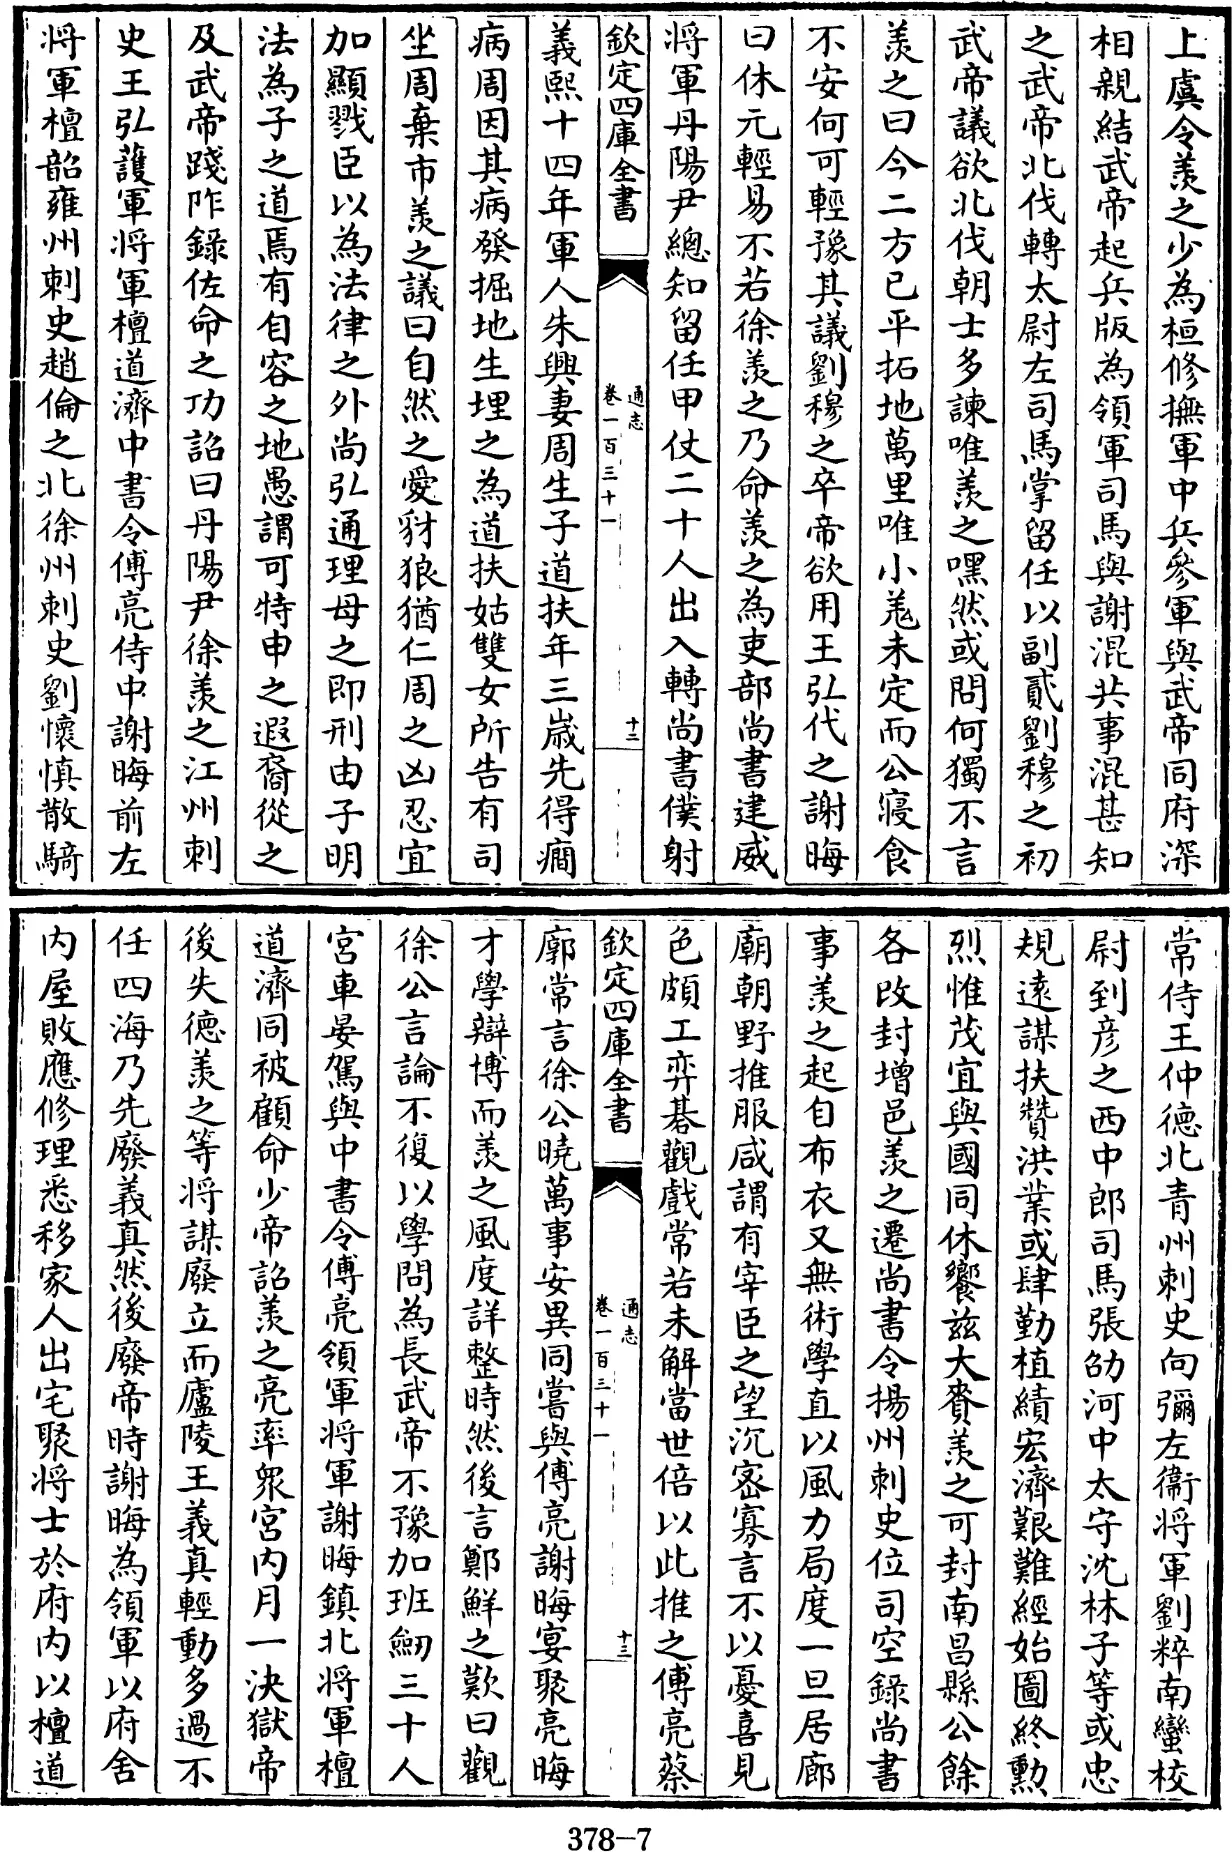 上虞令羨之少為桓修撫軍中兵參軍與武帝同府深
相親結武帝起兵版為領軍司馬與謝混共事混甚知
之武帝北伐轉太尉左司馬掌留任以副貳劉穆之初
武帝議欲北伐朝士多諫唯羨之嘿然或問何獨不言
羨之曰今二方已平拓地萬里唯小羗未定而公寢食
不安何可輕豫其議劉穆之卒帝欲用王弘代之謝晦
曰休元輕易不若徐羨之乃命羨之為吏部尚書建威
將軍丹陽尹總知留任甲仗二十人出入轉尚書僕射
欽定四庫全書
通志
卷一百三十一
十二
義熙十四年軍人朱興妻周生子道扶年三嵗先得癎
病周因其病發掘地生埋之為道扶姑雙女所告有司
坐周棄市羨之議曰自然之愛豺狼猶仁周之凶忍宜
加顯戮臣以為法律之外尚弘通理母之即刑由子明
法為子之道焉有自容之地愚謂可特申之遐裔從之
及武帝踐阼錄佐命之功詔曰丹陽尹徐羨之江州刺
史王弘護軍將軍檀道濟中書令傅亮侍中謝晦前左
將軍檀韶雍州刺史趙倫之北徐州刺史劉懷慎散騎
常侍王仲德北青州刺史向彌左衞將軍劉粹南蠻校
尉到彦之西中郎司馬張劭河中太守沈林子等或忠
規遠謀扶贊洪業或肆勤植績宏濟艱難經始圖終勲
烈惟茂宜與國同休饗兹大賚羨之可封南昌縣公餘
各改封增邑羨之遷尚書令揚州刺史位司空錄尚書
事羨之起自布衣又無術學直以風力局度一旦居廊
廟朝野推服咸謂有宰臣之望沉宻寡言不以憂喜見
色頗工弈棊觀戲常若未解當世倍以此推之傅亮蔡
欽定四庫全書
通志
卷一百三十一
十三
廓常言徐公曉萬事安異同嘗與傅亮謝晦宴聚亮晦
才學辯博而羨之風度詳整時然後言鄭鮮之歎曰觀
徐公言論不復以學問為長武帝不豫加班劒三十人
宮車晏駕與中書令傅亮領軍將軍謝晦鎮北將軍檀
道濟同被顧命少帝詔羨之亮率衆宮内月一決獄帝
後失德羨之等將謀廢立而廬陵王義真輕動多過不
任四海乃先廢義真然後廢帝時謝晦為領軍以府舍
内屋敗應修理悉移家人出宅聚將士於府内以檀道
378-7